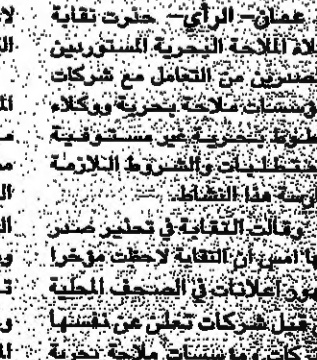 عمان– الرأي– حذرت نقابة
لاء الملاحة البحرية المستوردين
لمصدرين من التعامل مع شركات
ؤسسات ملاحة بحرية ووكلاء
طوط بحرية غير مستوفية
متطلبات والشروط اللازمة
ارسة هذا النشاط.
وقالت النقابة في تحذير صدر
ها امس ان النقابة لاحظت مؤخرا
هور اعلانات في الصحف المحلية
قبل شركات تعلن عن نفسها
ملاحة بحرية